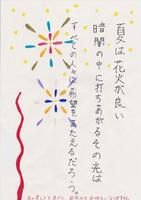 夏は花火が良い
暗闇の中に打ちあがるその光は
すべての人々に希望をあたえるだろう。